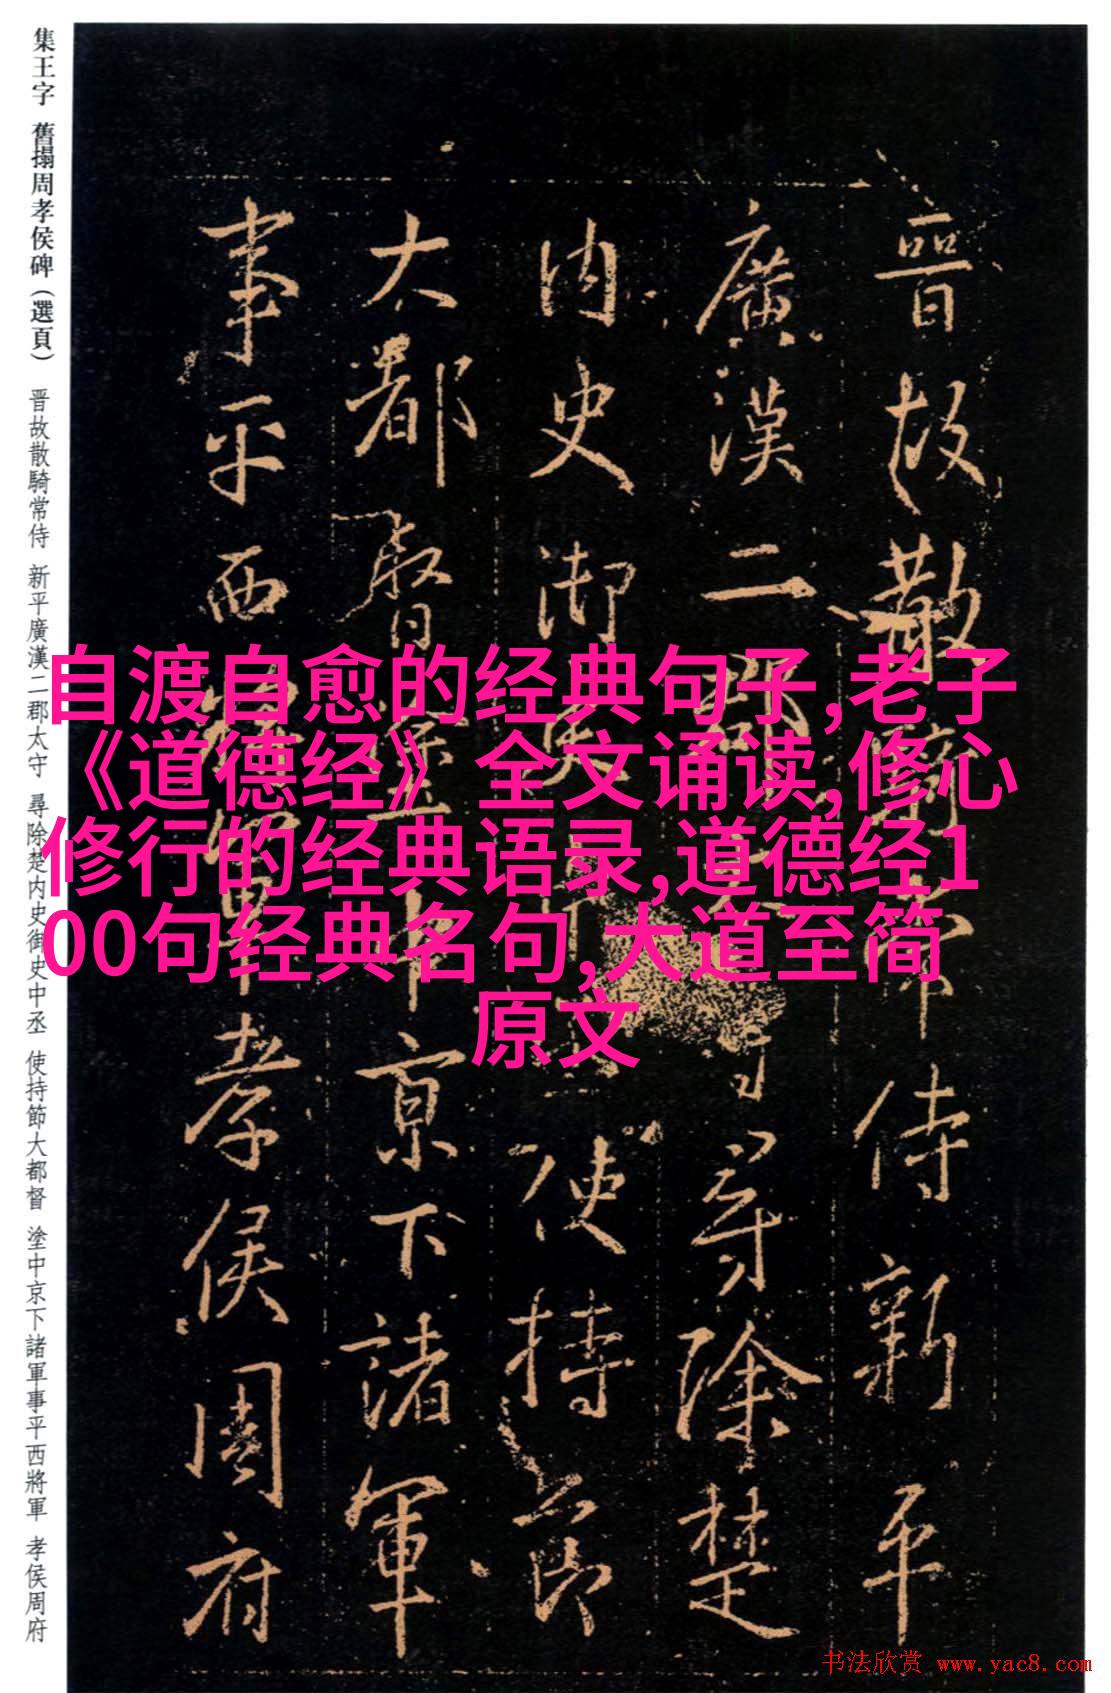 集王字 舊搨周孝侯碑（選頁） 晋故散騎常侍 新平廣漢二郡太守 尋除楚内史御史中丞 使持節大都督 塗中京下諸軍事平西將軍 孝侯周府
晉故散 常侍新平
廣漢二郡 守尋除楚
内史御史中 使持節
大都督 中京下諸軍
事平西 軍孝侯周府
自渡自愈的经典句子,老子
《道德经》全文诵读,修心
修行的经典语录,道德经1
00句经典名句,大道至简
原文
书法欣赏 www.yac8.com